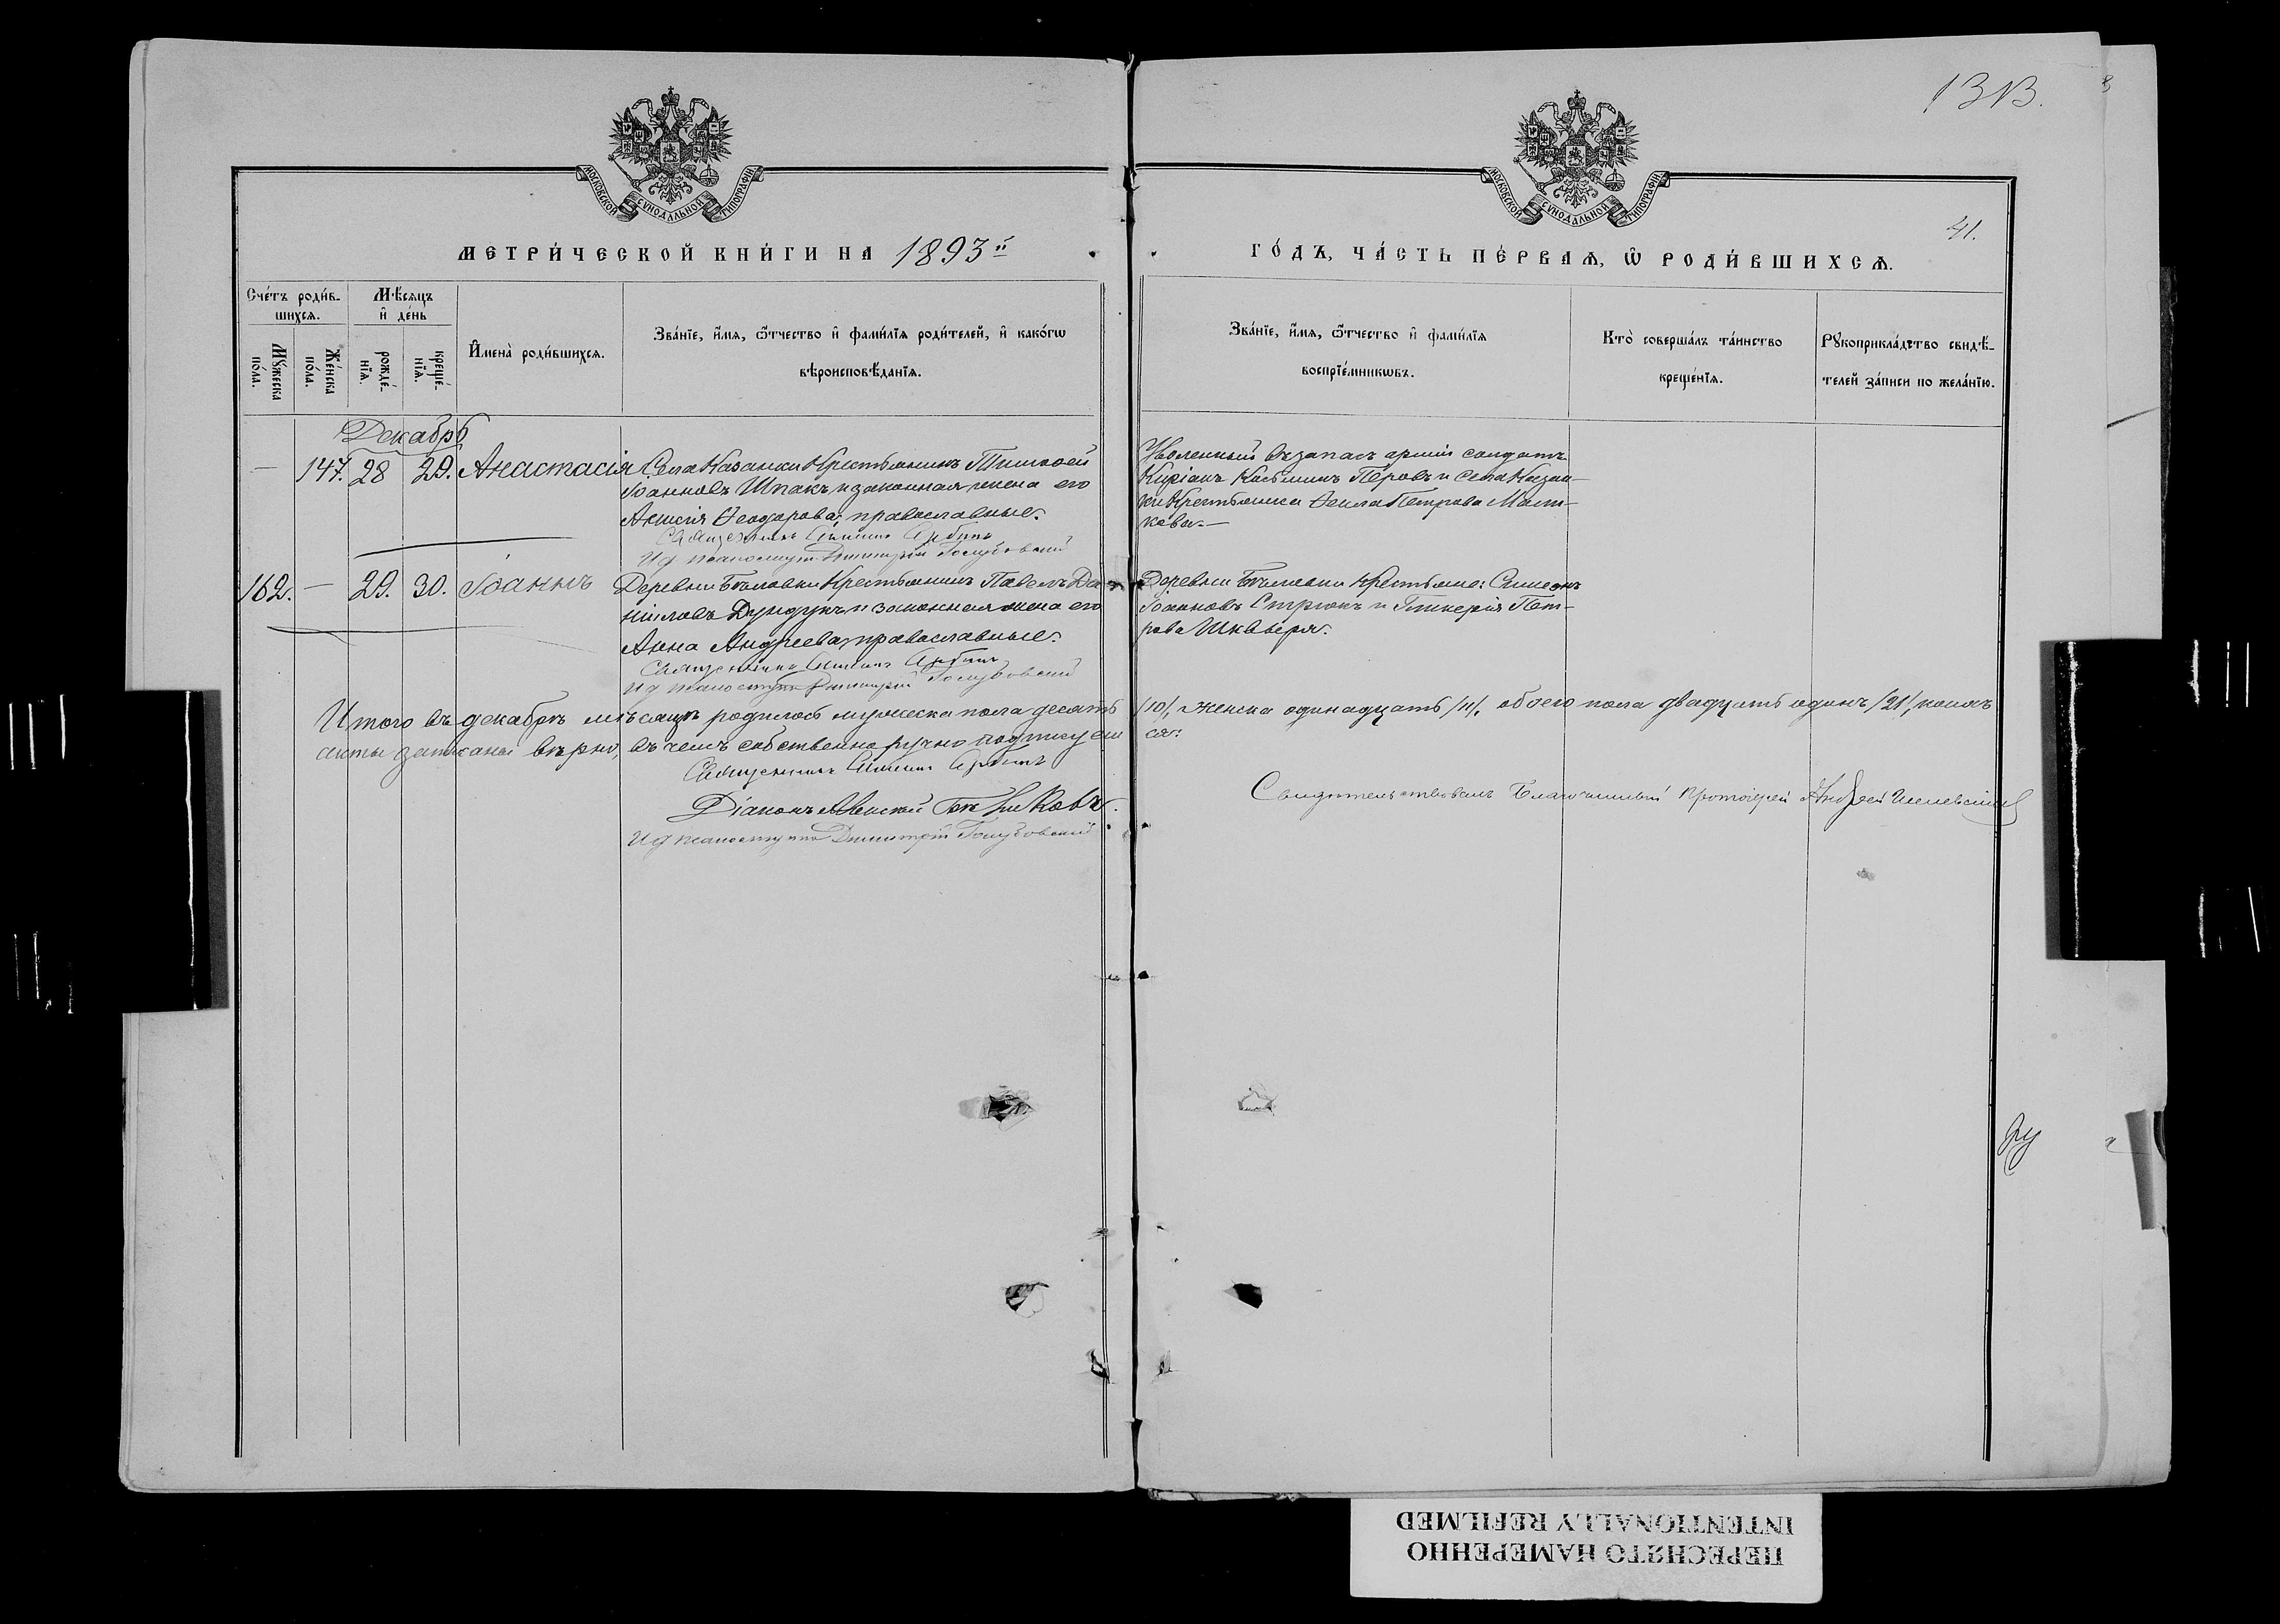 1313.
41.
МОСКОВСКОЙ СУНОДАЛЬНОЙ ТИПОГРАФІИ
МОСКОВСКОЙ СУНОДАЛЬНОЙ ТИПОГРАФІИ
МЕТРИ́ЧЕСКОЙ КНИ́ГИ НА 1893й
ГО́ДЪ, ЧА́СТЬ ПЕ́РВАѦ, Ѿ РОДИ́ВШИХСѦ.
Сче́тъ роди́в-
шихсѧ.
Мꙋ́жеска
по́ла.
Же́нска
по́ла.
Мѣ́сѧцъ
и҆ де́нь
рожде́-
нїѧ.
креще́-
нїѧ.
И҆мена̀ роди́вшихсѧ.
Зва́нїе, и҆́мѧ, ѻ҆́тчество и҆ фами́лїѧ роди́телей, и҆ како́гѡ
вѣроисповѣ́данїѧ.
Зва́нїе, и҆́мѧ, ѻ҆́тчество и҆ фами́лїѧ
воспрїе́мникѡвъ.
Кто̀ соверша́лъ та́инство
креще́нїѧ.
Рꙋкоприкла́дство свидѣ́-
телей за́писи по жела́нїю.
Декабрь
— 147. 28 29. Анастасія
Села Казанки Крестьянинъ Тимоѳей
Іоанновъ Шпакъ и законная жена его
Ѳеодорова; православные.
Священникъ
И д псаломщика Димитрій Голубовскій
Уволенный въ запасъ арміи солдатъ
Киріанъ Косьминъ Перовъ и села Казан-
ки Крестьянка Ѳекла Петрова Мат-
кова.—
162. — 29. 30. Іоаннъ
Деревни Бѣловки Крестьянинъ Павелъ Да-
ніиловъ Дундукъ и законная жена его
Анна Андреева, православные.
Священникъ
И д псаломщика Димитрій Голубовскій
Деревни Бѣловки Крестьяне: Симеонъ
Іоанновъ Стрюкъ и Гликерія Пет-
рова Шкверя.
Итого въ декабрѣ мѣсяцѣ родилось мужеска пола десять /10/, женска одинадцать /11/, обоего пола двадцать одинъ /21/,
акты записаны вѣрно, въ чемъ собственноручно подписуем ся:
Священникъ
Діаконъ
И д псаломщика Димитрій Голубовскій
Свидѣтельствовалъ Благочинный Протоіерей Андрей
ПЕРЕСНЯТО НАМЕРЕННО
INTENTIONALLY REFILMED